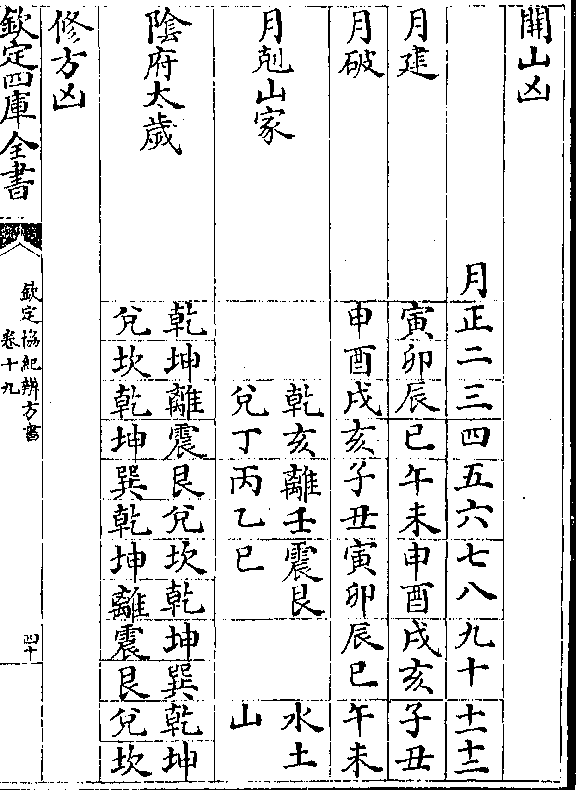 開山凶
月正二三四五六七八九十十一十二
月建 寅卯辰巳午未申酉戌亥子丑
月破 申酉戌亥子丑寅卯辰巳午未
月剋山家 乾亥離壬震艮 水土
兌丁丙乙巳 山
陰府太歲 乾坤離震艮兌坎乾坤巽乾坤
兌坎乾坤巽乾坤離震艮兌坎
修方凶
欽定四庫全書
欽定協紀辨方書
卷十九
四十